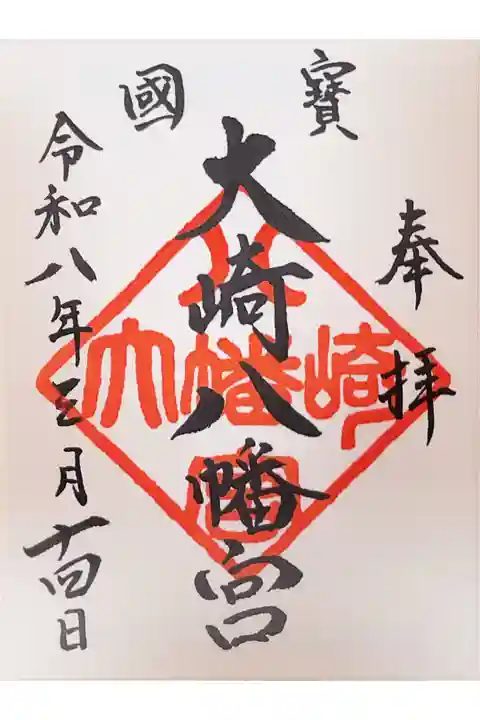 奉拝
國寶
大崎八幡宮
令和八年三月十四日
大崎八幡宮